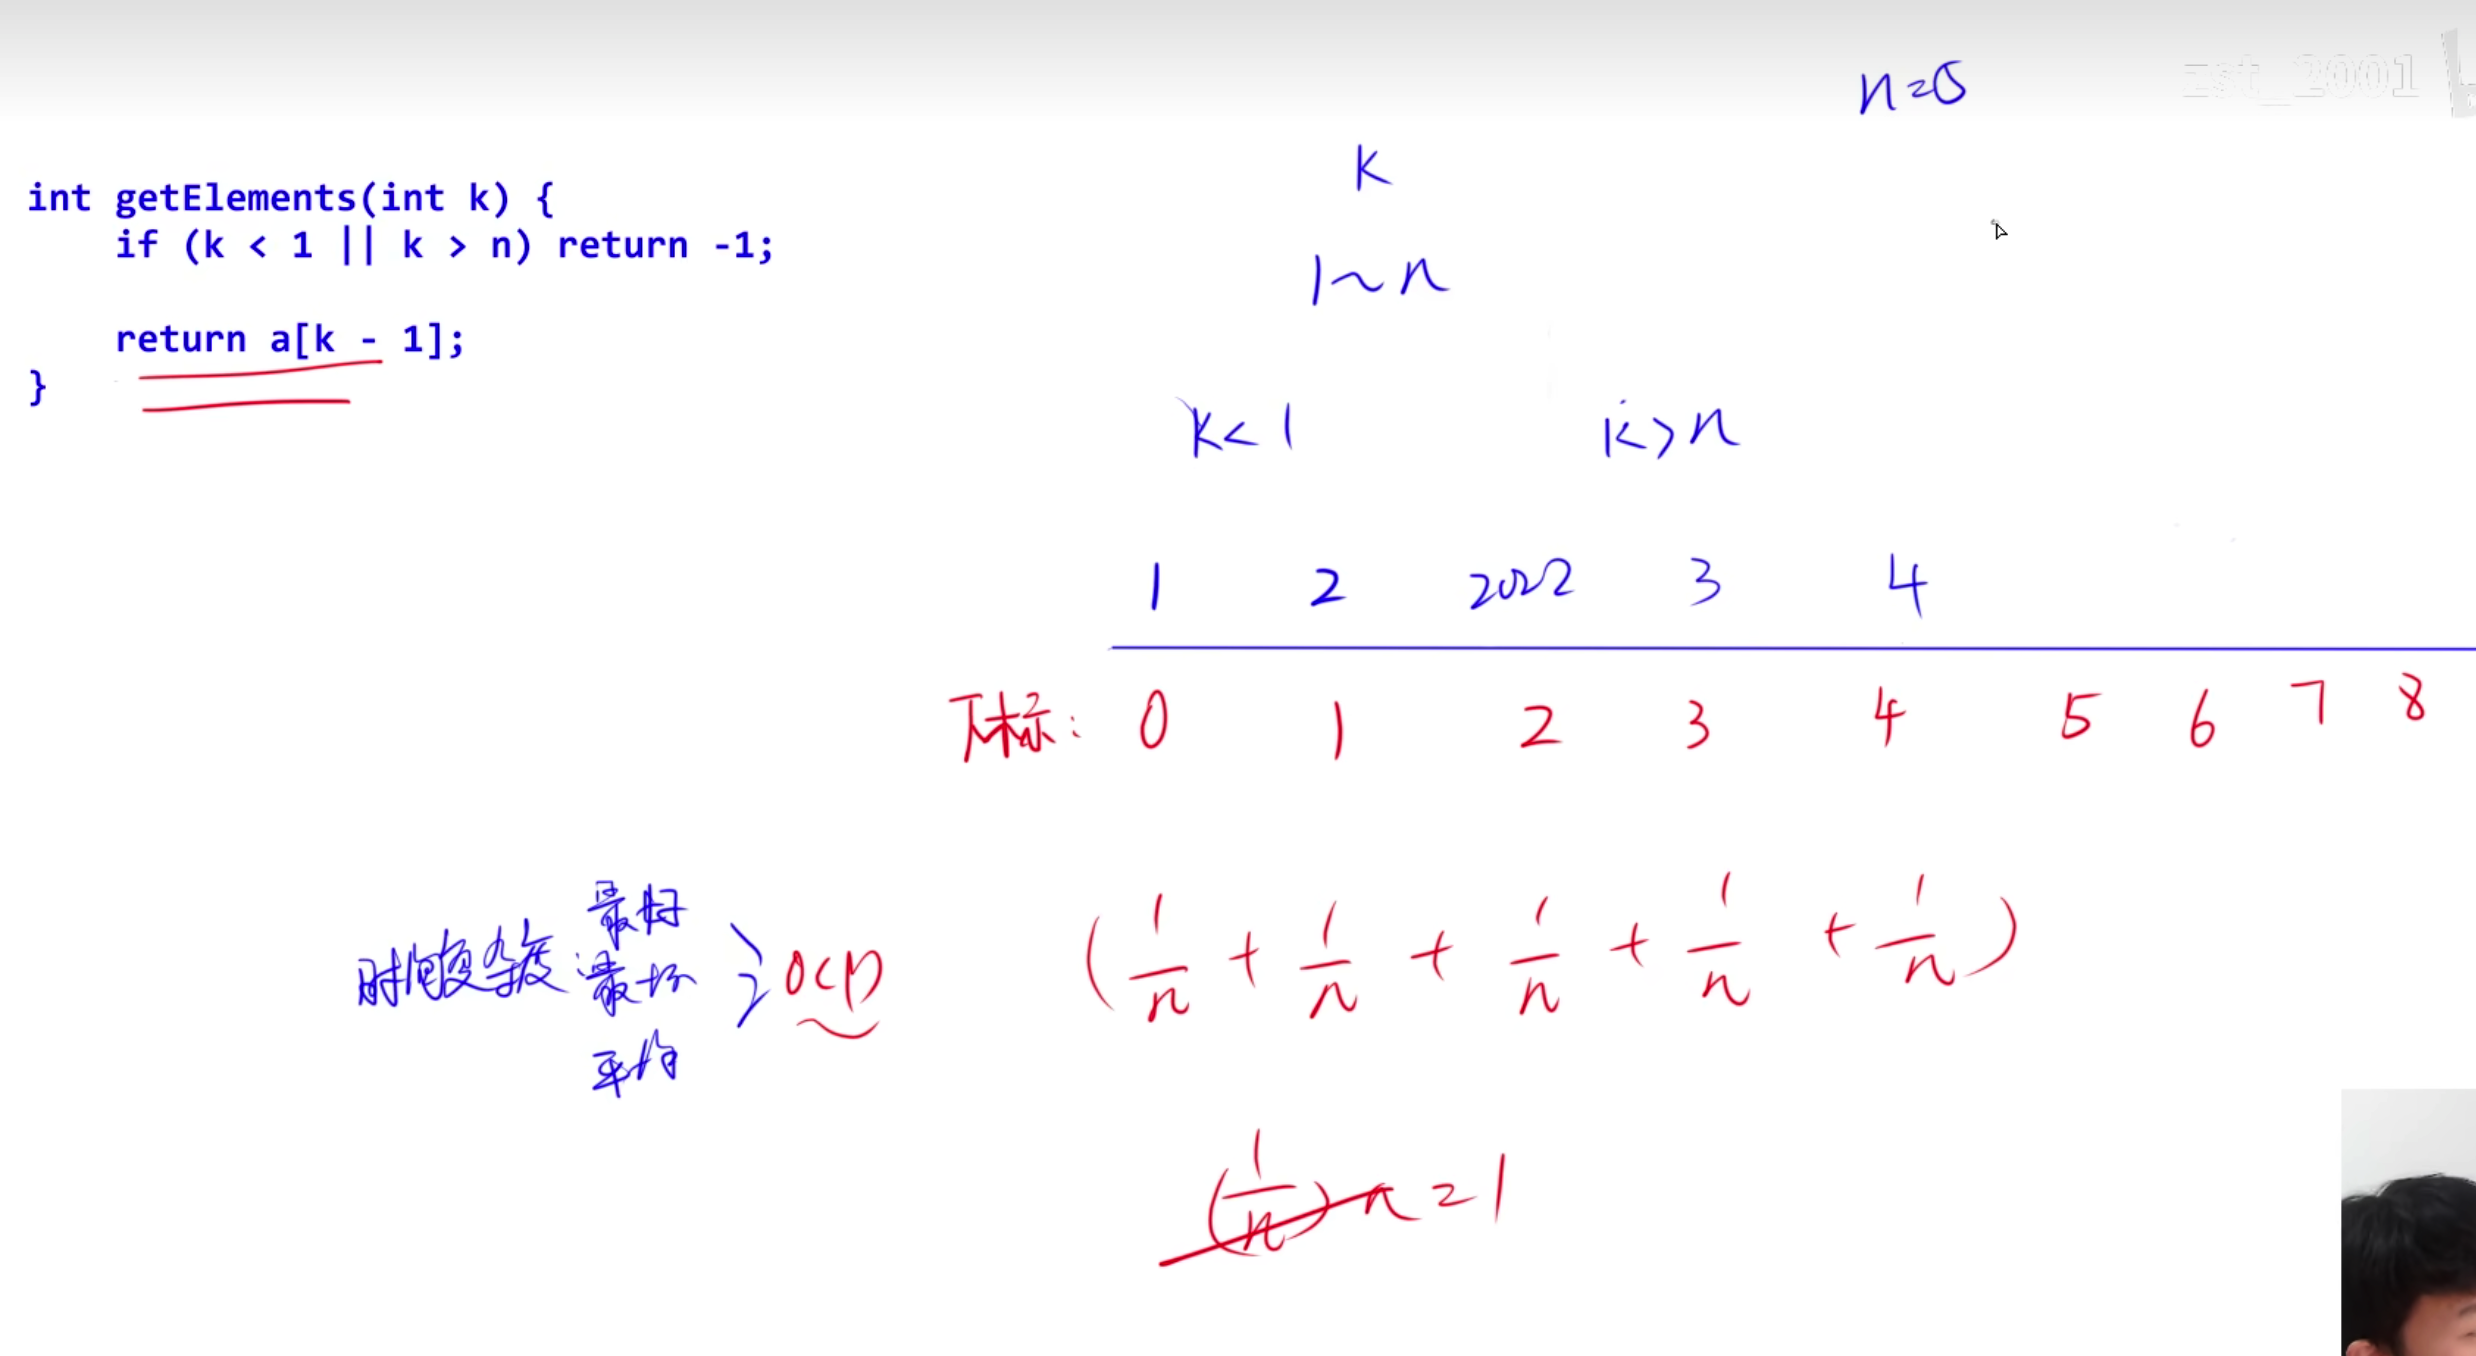 n=5
zst_2001
K
int getElements(int k) {
if (k < 1 || k > n) return -1;
1~n
return a[k - 1];
}
k<1 k>n
1 2 2022 3 4
下标: 0 1 2 3 4 5 6 7 8
最好
时间复杂度: 最坏 O(1)
平均
(1/n + 1/n + 1/n + 1/n + 1/n)
(1/n) n = 1